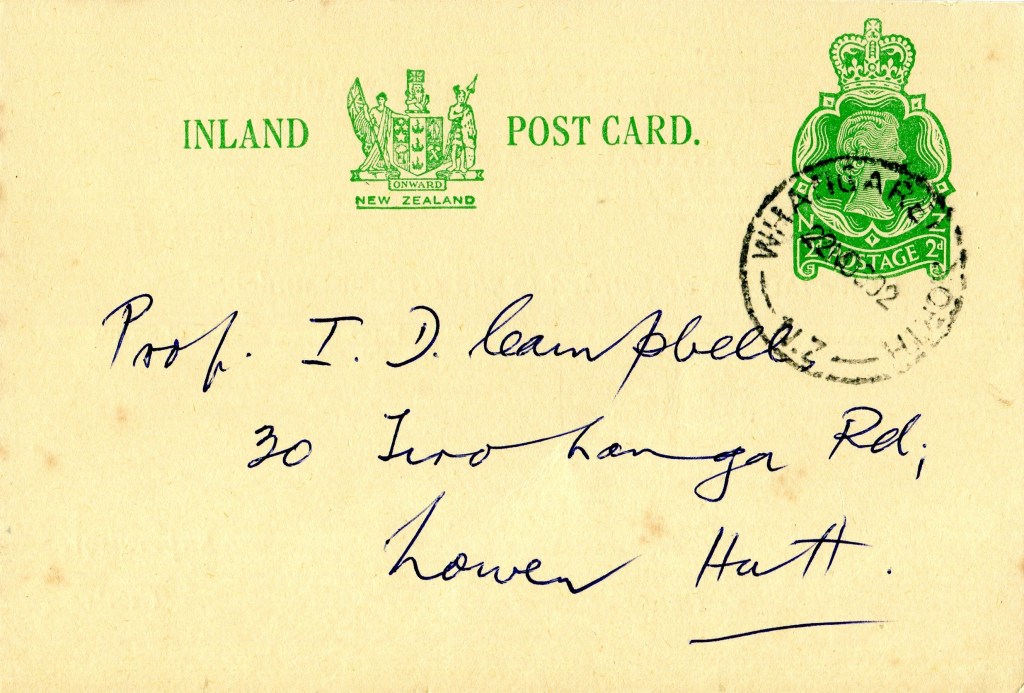 INLAND POST CARD.
ONWARD
NEW ZEALAND
N Z
2d POSTAGE 2d
WHANGAREI NORTH
N.Z.
Prof. I. D. Campbell,
30 Tirohanga Rd;
Lower Hutt.